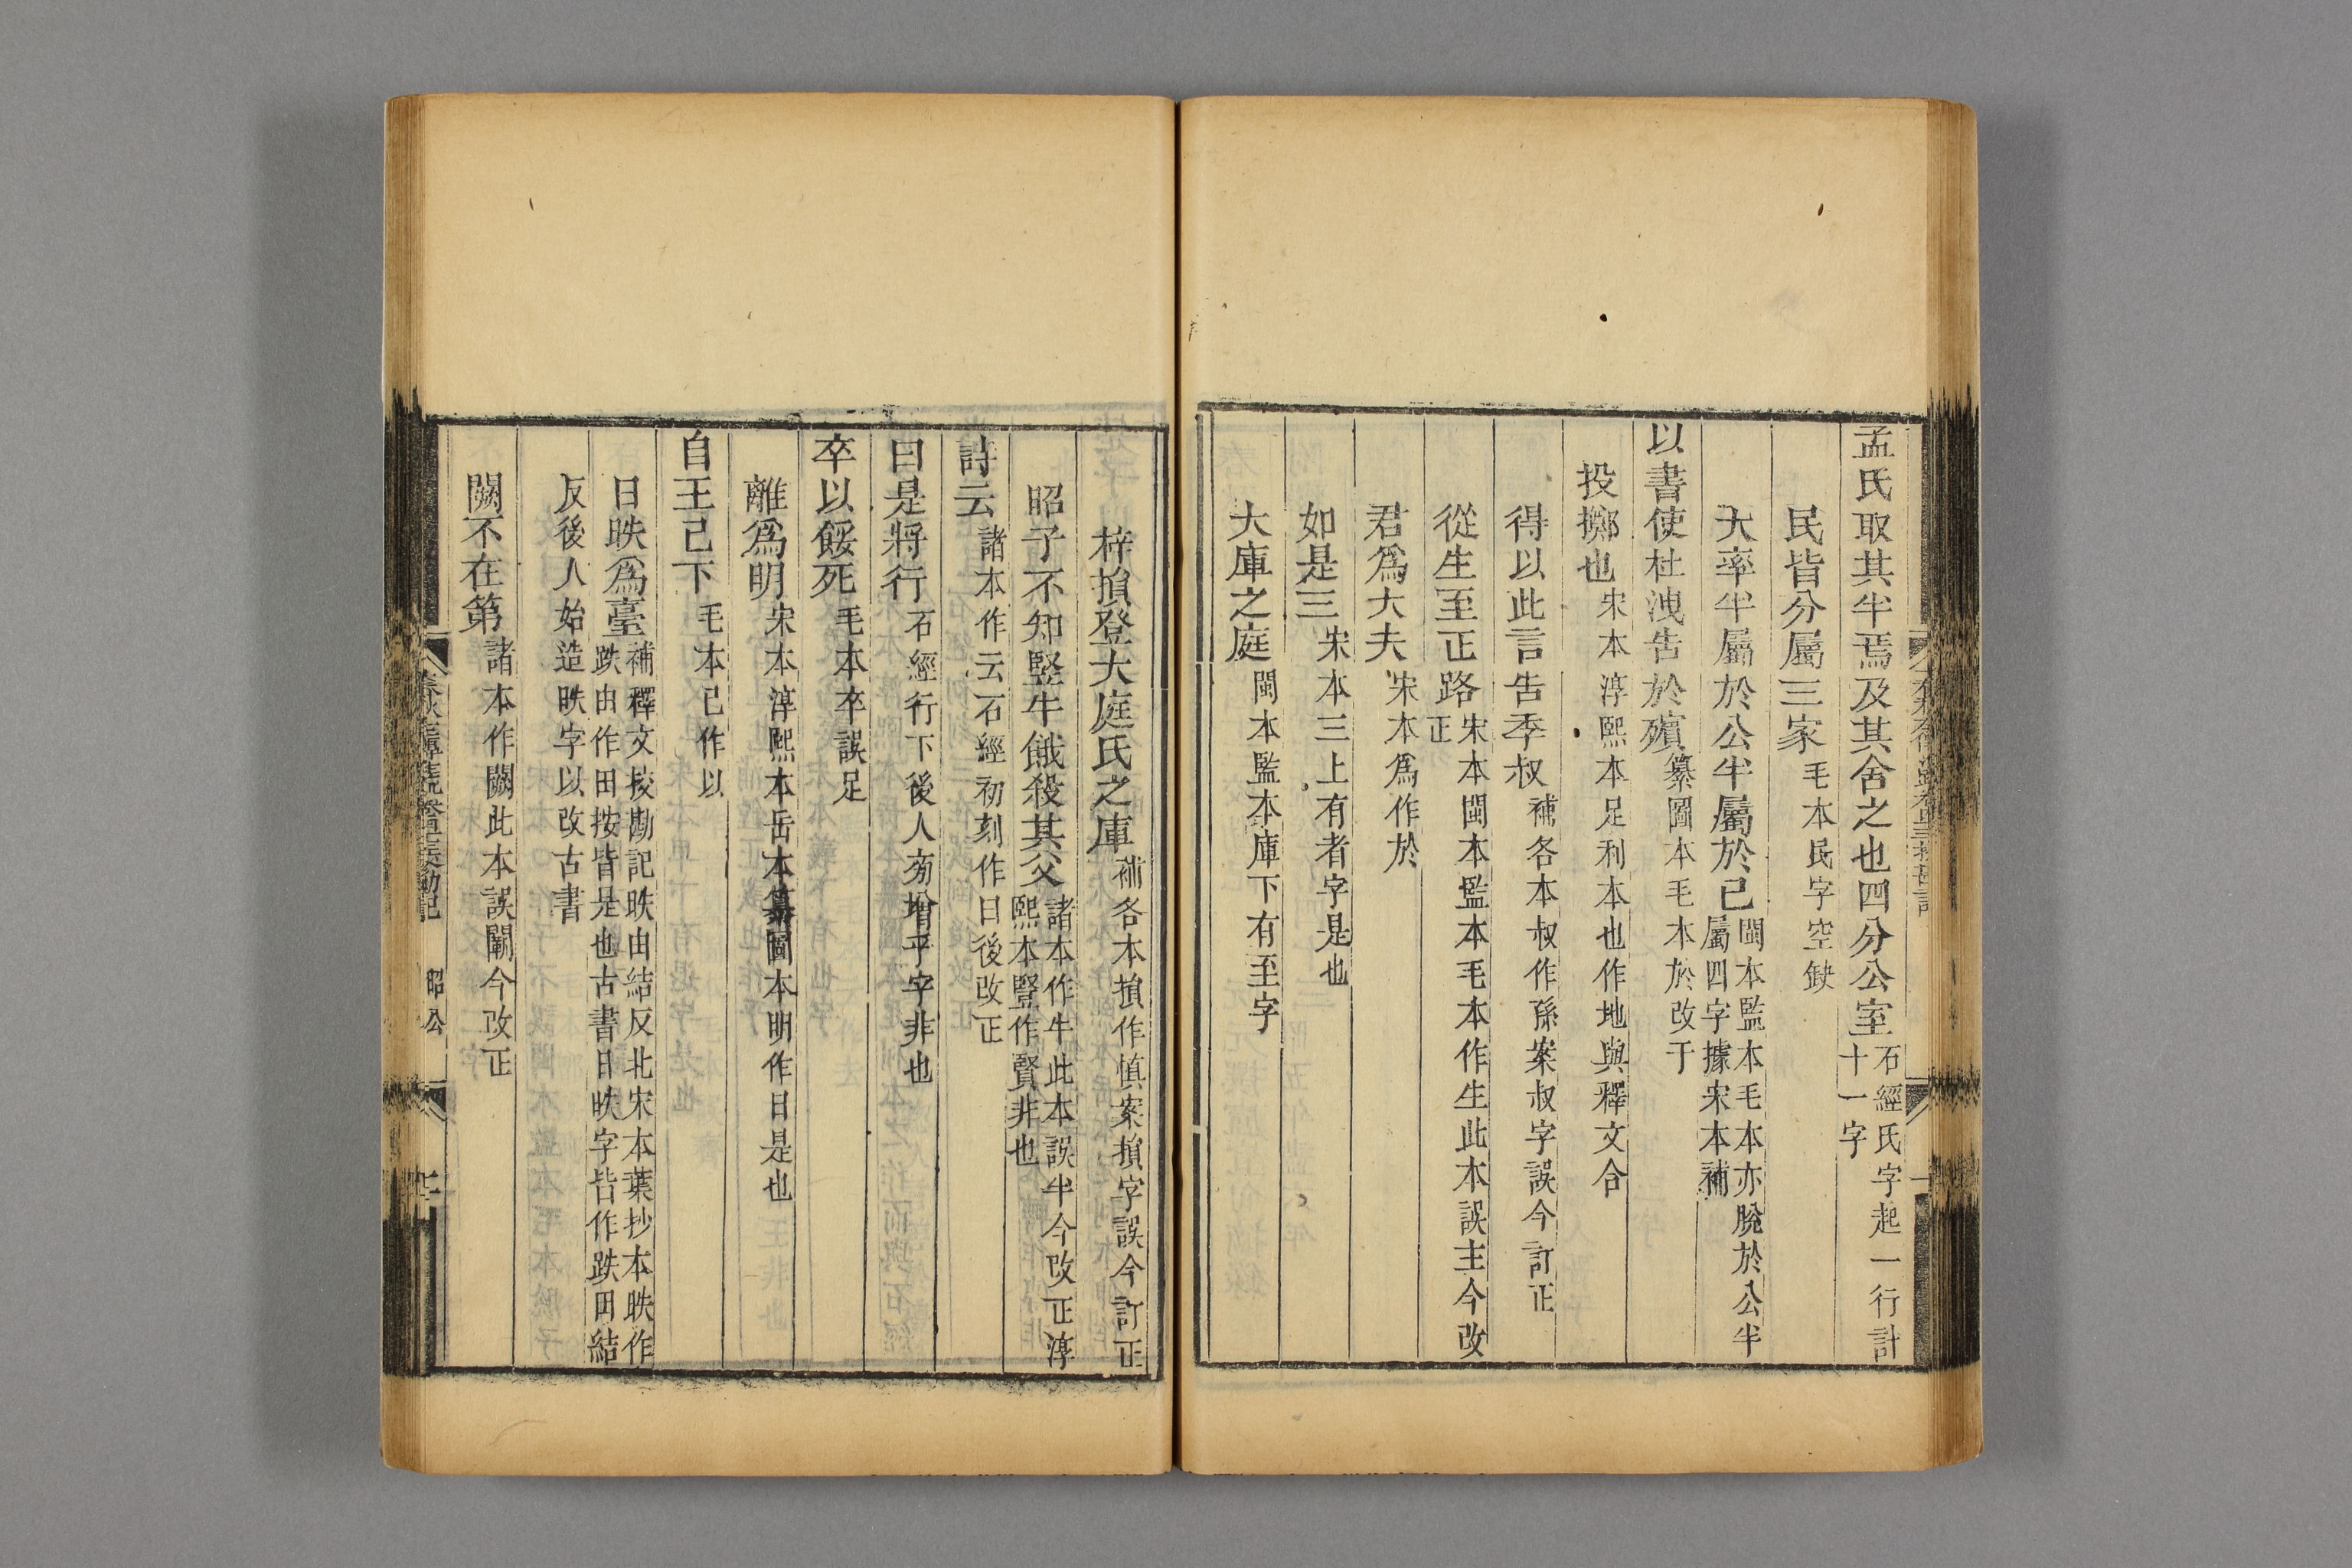 孟氏取其半焉及其舍之也四分公室石經氏字起一行計
十一字
民皆分屬三家毛本民字空缺
大率半屬於公半屬於己閩本監本毛本亦脫於公半
屬四字據宋本補
以書使杜洩告於殯纂圖本毛本於改于
投擲也宋本淳熙本足利本也作地與釋文合
得以此言告季叔補各本叔作孫案叔字誤今訂正
從生至正路宋本閩本監本毛本作生此本誤主今改
正
君爲大夫宋本爲作於
如是三宋本三上有者字是也
大庫之庭閩本監本庫下有至字
梓損登大庭氏之庫補各本損作慎案損字誤今訂正
昭子不知豎牛餓殺其父諸本作牛此本誤半今改正淳
熙本豎作賢非也
詩云諸本作云石經初刻作曰後改正
曰是將行石經行下後人旁增乎字非也
卒以餒死毛本卒誤足
離爲明宋本淳熙本岳本纂圖本明作日是也
自王已下毛本已作以
日昳爲臺補釋文挍勘記昳由結反北宋本葉抄本昳作
跌由作田按皆是也古書日昳字皆作跌田結
反後人始造昳字以改古書
闕不在第諸本作闕此本誤闡今改正
昭公